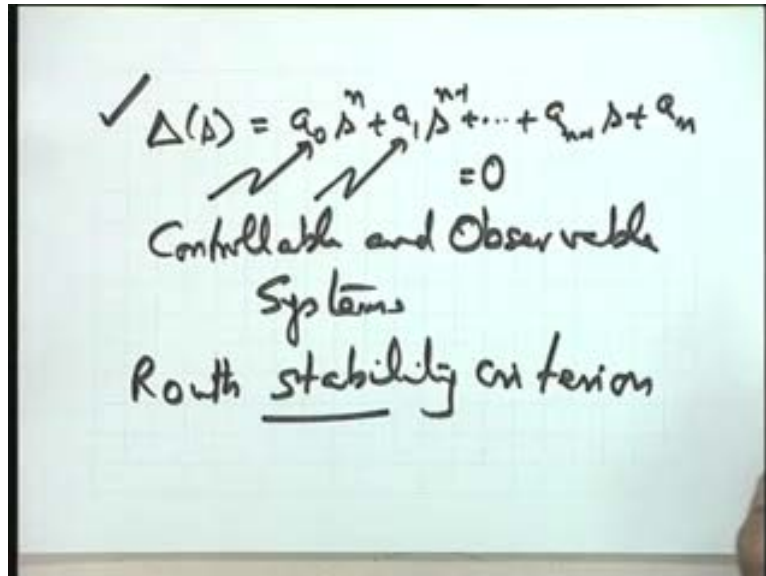 ✓ Δ(s) = a₀sⁿ + a₁sⁿ⁻¹ + ... + aₙ₋₁ s + aₙ
= 0
Controllable and Observable
Systems
Routh stability criterion